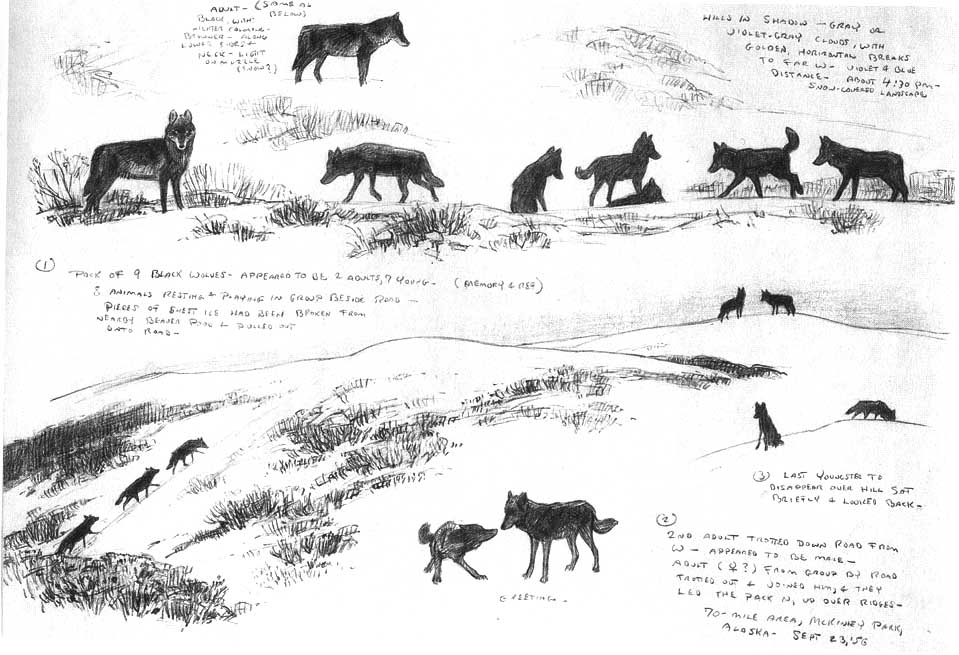 ADULT - (SAME AS BELOW)
BLACK, WITH
LIGHTER COLORING -
BROWNER - ALONG
LOWER SIDES &
NECK - LIGHT
ON MUZZLE
(SNOW?)
HILLS IN SHADOW - GRAY OR
VIOLET-GRAY CLOUDS, WITH
GOLDEN, HORIZONTAL BREAKS
TO FAR W - VIOLET & BLUE
DISTANCE - ABOUT 4:30 PM -
SNOW-COVERED LANDSCAPE
① PACK OF 9 BLACK WOLVES - APPEARED TO BE 2 ADULTS, 7 YOUNG - (MEMORY & REF)
8 ANIMALS RESTING & PLAYING IN GROUP BESIDE ROAD -
PIECES OF SHEET ICE HAD BEEN BROKEN FROM
NEARBY BEAVER POND & PULLED OUT
ONTO ROAD -
③ LAST YOUNGSTER TO
DISAPPEAR OVER HILL SAT
BRIEFLY & LOOKED BACK -
②
2ND ADULT TROTTED DOWN ROAD FROM
W - APPEARED TO BE MALE -
ADULT (♀?) FROM GROUP BY ROAD
TROTTED OUT & JOINED HIM, & THEY
LED THE PACK N, UP OVER RIDGES -
70-MILE AREA, MCKINLEY PARK,
ALASKA - SEPT 23, '56
GREETING -